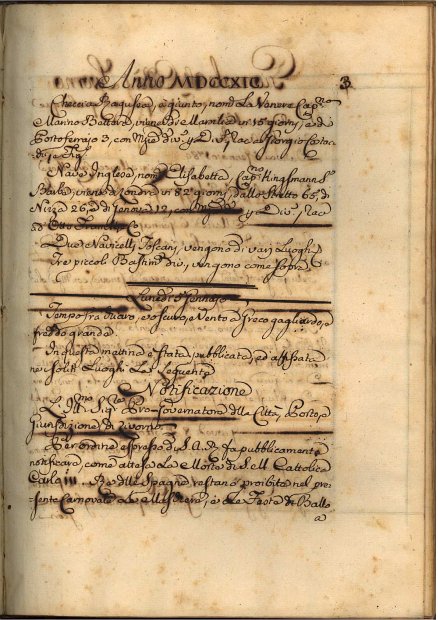 Anno MDCCXIC 3
Checcia Ragusea, è giunto, nom.ta La Venere Cap.no
Marino Bettara, viene di Marsilia in 15 giorni, e di
Portoferrajo 3, con div.
Nave Inglese, nom. Elisabetta, Cap.no Kingsmann
viene di Londra in 82 giorni, dallo Stretto 65, di
Nizza 26, e di Genova 12, con
Due Navicelli Toscani, vengono di varj Luoghi
Tre piccoli Bastim.ti div., vengono come sopra
Lunedì 5 Gennajo
Tempo fra chiaro, e oscuro, e Vento a Greco gagliardo, e
freddo grande
In questa mattina è stata pubblicata, ed affissata
ne' soliti Luoghi La seguente
Notificazione
L'Ill.mo Sig.re Pro-Governatore della Città, Porto, e
Giurisdizione di Livorno
Per ordine espresso di S.A.R. fa pubblicamente
notificare, come attesa La Morte di S.M. Cattolica
Carlo III. Re delle Spagne restano proibite nel pre-
sente Carnovale Le Maschere, e Le Feste di Ballo
a